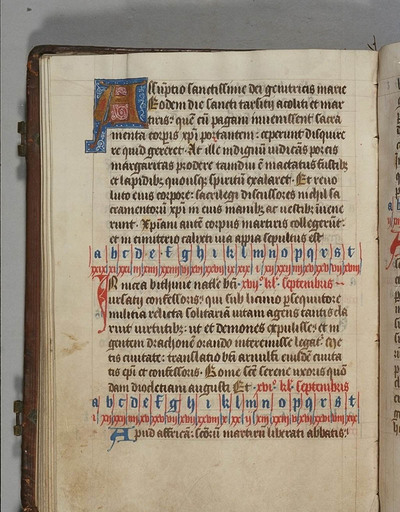 Assūptio sanctissime dei genitricis marie
Eodem die sancti tarsitij acoliti et mar
tiris: quē cū pagani inuenissent sacra
menta corpis xp̄i portantem: ceperunt disquire
re quid gereret. At ille indignū iudicās porcis
margaritas prodere tamdiu ē mactatus fustibꝫ
et lapidibꝫ quousqꝫ spiritū exalaret. Et reuo
luto eius corpore: sacrilegi discussores nichil sa
cramentorū xp̄i in eius manibꝫ ac uestibꝫ inuene
runt. Xpiani aut corpus martiris collegerūt:
et in cimiterio calixti uia appia sepultus est
a b c d e f g h i k l m n o p q r s t
In nicea bithinie natle bti xvij kl septembris
ursatij confessoris: qui sub licinio psequutore
militia relicta solitariā uitam agens tantis cla
ruit uirtutibꝫ: ut et demones expulisse: et in
gentem draconē orando interemisse legat
tis ciuitate: translatio bti arnulfi eiusdē ciuita
tis epi et confessoris. Rome sce serene uxoris quō
dam diocletiani augusti. Et xvi kl septembris
a b c d e f g h i k l m n o p q r s t
Apud affricā: scōrū martirū liberati abbatis: